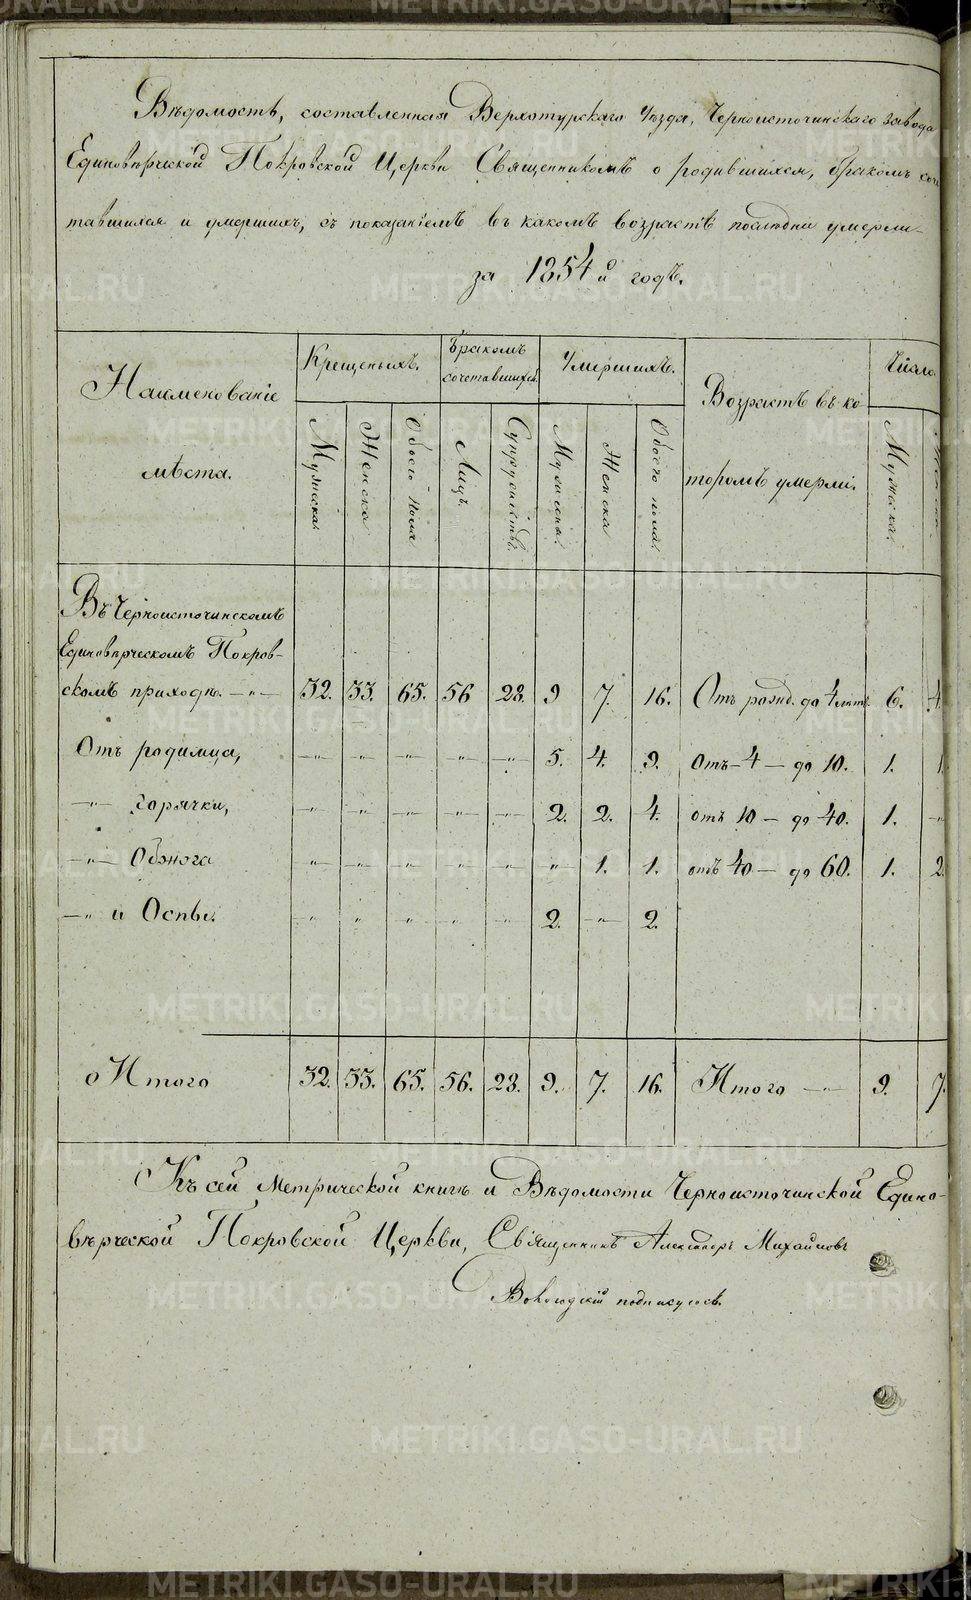 Вѣдомость, составленная Верхотурскаго Уѣзда, Черноисточинскаго завода
Единовѣрческой Покровской Церкви Священникомъ о родившихся, бракомъ соче
тавшихся и умершихъ, съ показаніемъ въ какомъ возрастѣ послѣдни умерли
за 1854й годъ.
Наименованіе мѣста. Крещеныхъ. Бракомъ сочетавшихся. Умершихъ. Возрастъ въ ко торомъ умерли. Число
Мужска. Женска Обоего пола Лицъ. Супружествъ. Мужска. Женска Обоего пола. Мужска.
Въ Черноисточинскомъ
Единовѣрческомъ Покров-
скомъ приходѣ. —„— 32. 33. 65. 56 28. 9 7. 16. Отъ рожд. до 4 лѣтъ 6. 4
Отъ родимца, —„— —„— —„— —„— —„— 5. 4. 9. Отъ — 4 — до 10. 1. 1
—„— горячки, —„— —„— —„— —„— —„— 2. 2. 4. отъ 10 — до 40. 1. —„
—„— Обжога —„— —„— —„— —„— —„— „ 1. 1. отъ 40 — до 60. 1. 2.
—„ и Оспы. „ „ „ „ „ 2. —„— 2.
Итого 32. 33. 65. 56. 28. 9. 7. 16. Итого —„— 9. 7.
Къ сей Метрической книгѣ и Вѣдомости Черноисточинской Едино-
вѣрческой Покровской Церкви, Священникъ Александръ Михайловъ
Вологодскій подписуюсь.
METRIKI.GASO-URAL.RU